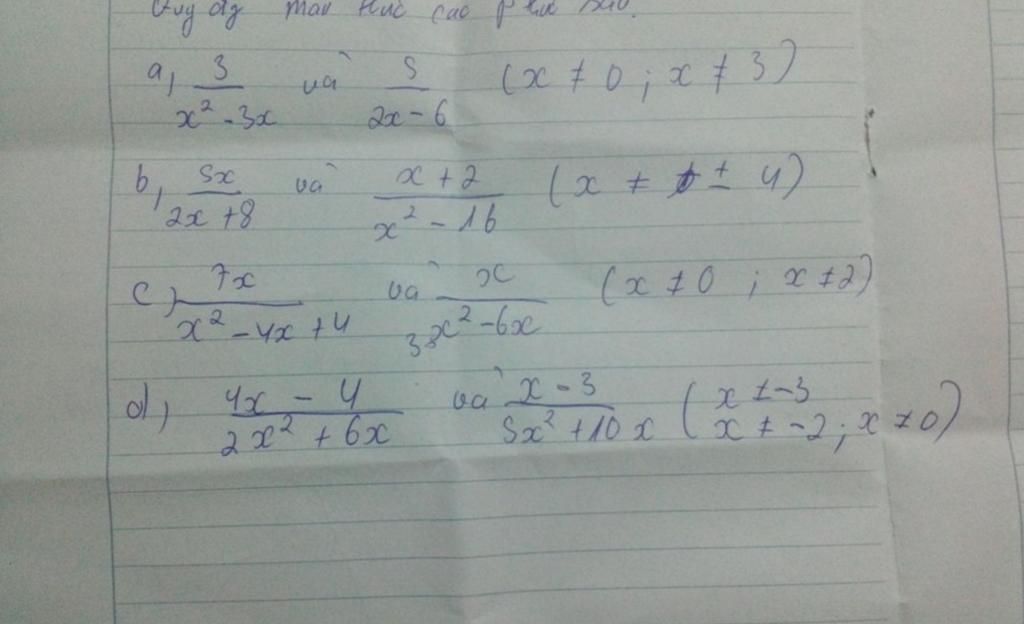 Quy đg mẫu thức các phth sau.
a, 3/(x² - 3x) và 5/(2x - 6) (x ≠ 0 ; x ≠ 3)
b, 5x/(2x + 8) và (x + 2)/(x² - 16) (x ≠ ± 4)
c, 7x/(x² - 4x + 4) và x/(3x² - 6x) (x ≠ 0 ; x ≠ 2)
d, (4x - 4)/(2x² + 6x) và (x - 3)/(5x² + 10x) (x ≠ -3
x ≠ -2 ; x ≠ 0)